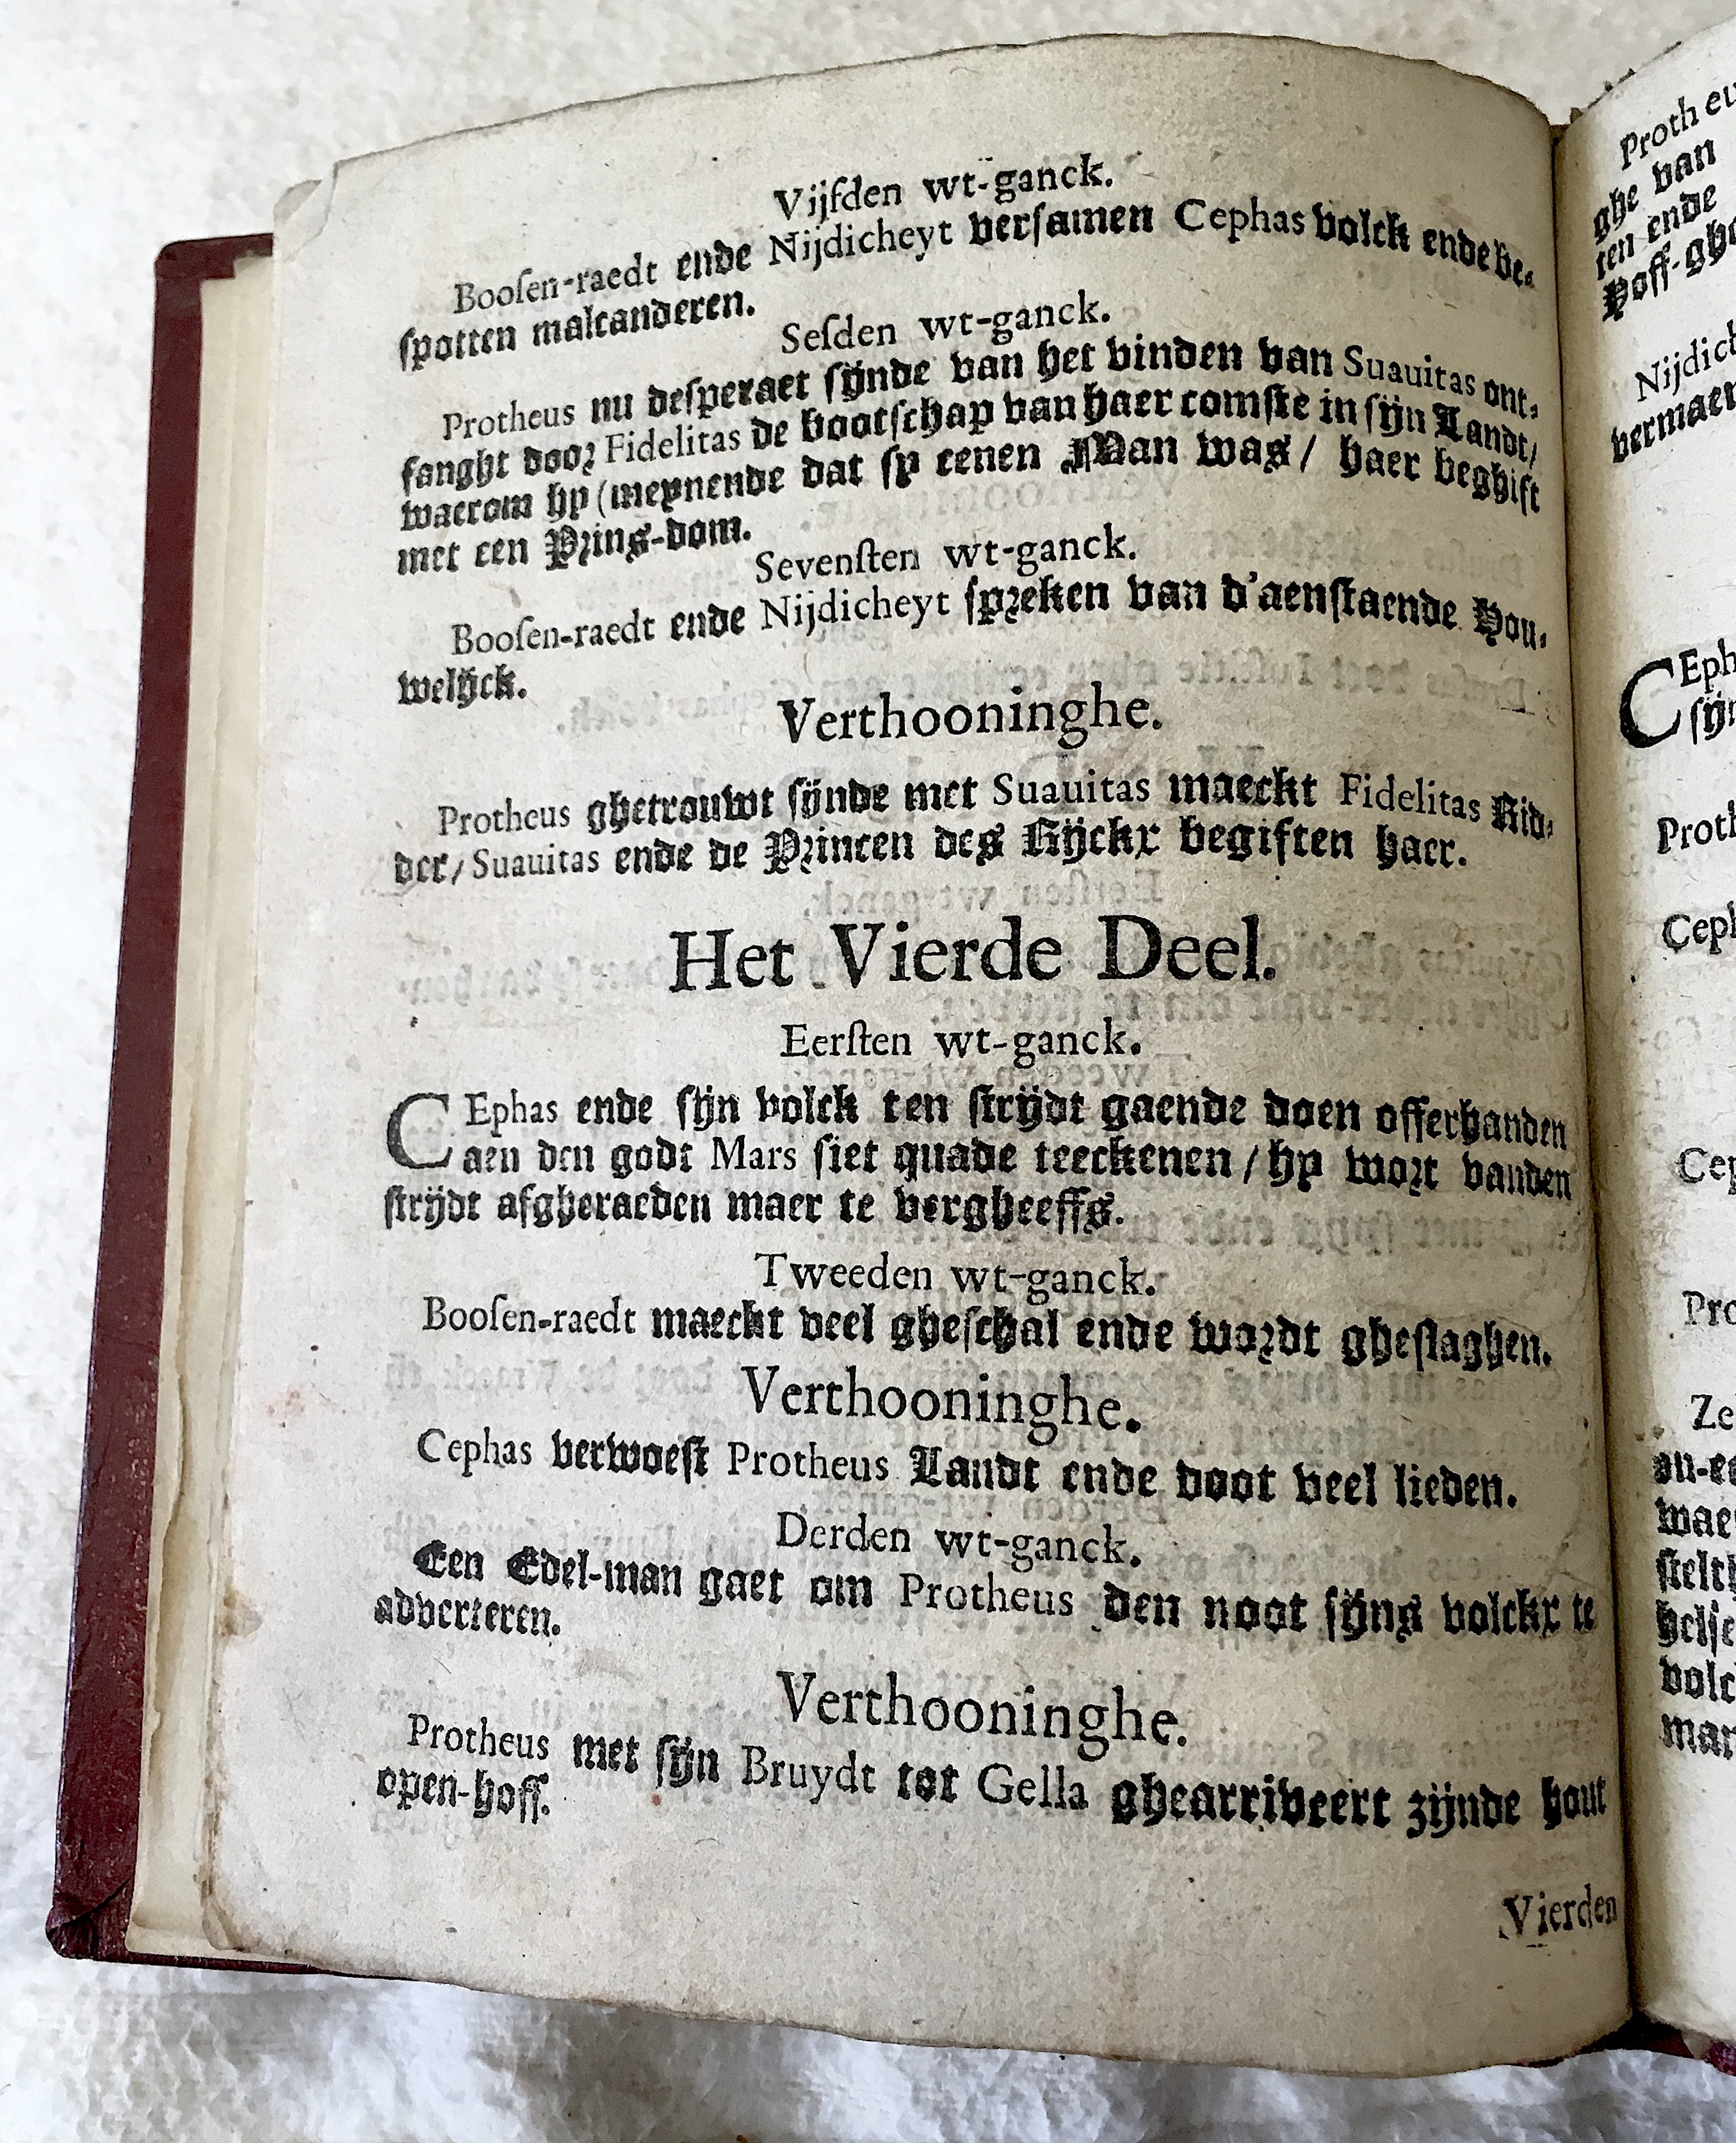 Vijfden wt-ganck.
Boosen-raedt ende Nijdicheyt versamen Cephas volck ende be-
spotten malcanderen.
Sesden wt-ganck.
Protheus nu desperaet sijnde van het vinden van Suauitas ont-
fanght door Fidelitas de bootschap van haer comste in sijn Landt/
waerom hy (meynende dat sy eenen Man was/ haer beghift
met een Prins-dom.
Sevensten wt-ganck.
Boosen-raedt ende Nijdicheyt spreken van d'aenstaende Hou-
welijck.
Verthooninghe.
Protheus ghetrouwt sijnde met Suauitas maeckt Fidelitas Rid-
der/ Suauitas ende de Princen des Rijckx begiften haer.
Het Vierde Deel.
Eersten wt-ganck.
CEphas ende sijn volck ten strijdt gaende doen offerhanden
aen den godt Mars siet quade teeckenen / hy wort vanden
strijdt afgheraeden maer te vergheeffs.
Tweeden wt-ganck.
Boosen-raedt maeckt veel gheschal ende wordt gheslaghen.
Verthooninghe.
Cephas verwoest Protheus Landt ende doot veel lieden.
Derden wt-ganck.
Een Edel-man gaet om Protheus den noot sijns volckx te
adverteren.
Verthooninghe.
Protheus met sijn Bruydt tot Gella ghearriveert zijnde hout
open-hoff.
Vierden
Protheu
ghe van
ten ende
Hoff-ghe
Nijdich
vermaer
CEph
sijn
Proth
Ceph
Cep
Pro
Ze
on-ee
wae
stelth
helse
volc
man